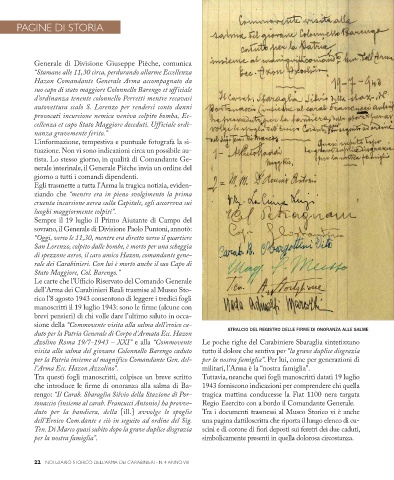 PAGINE DI STORIA
Generale di Divisione Giuseppe Pièche, comunica
"Stamane alle 11,30 circa, perdurando allarme Eccellenza
Hazon Comandante Generale Arma accompagnato da
suo capo di stato maggiore Colonnello Barengo et ufficiale
d'ordinanza tenente colonnello Perretti mentre recavasi
autovettura scalo S. Lorenzo per rendersi conto danni
provocati incursione nemica veniva colpito bomba, Ec-
cellenza et capo Stato Maggiore deceduti. Ufficiale ordi-
nanza gravemente ferito."
L'informazione, tempestiva e puntuale fotografa la si-
tuazione. Non vi sono indicazioni circa un possibile au-
tista. Lo stesso giorno, in qualità di Comandante Ge-
nerale interinale, il Generale Pièche invia un ordine del
giorno a tutti i comandi dipendenti.
Egli trasmette a tutta l'Arma la tragica notizia, eviden-
ziando che "mentre era in pieno svolgimento la prima
cruenta incursione aerea sulla Capitale, egli accorreva sui
luoghi maggiormente colpiti".
Sempre il 19 luglio il Primo Aiutante di Campo del
sovrano, il Generale di Divisione Paolo Puntoni, annotò:
"Oggi, verso le 11,30, mentre era diretto verso il quartiere
San Lorenzo, colpito dalle bombe, è morto per una scheggia
di spezzone aereo, il caro amico Hazon, comandante gene-
rale dei Carabinieri. Con lui è morto anche il suo Capo di
Stato Maggiore, Col. Barengo."
Le carte che l'Ufficio Riservato del Comando Generale
dell'Arma dei Carabinieri Reali trasmise al Museo Sto-
rico l'8 agosto 1943 consentono di leggere i tredici fogli
manoscritti il 19 luglio 1943: sono le firme (alcune con
brevi pensieri) di chi volle dare l'ultimo saluto in occa-
sione della "Commovente visita alla salma dell'eroico ca-
duto per la Patria Generale di Corpo d'Armata Ecc. Hazon
Azolino Roma 19/7-1943 – XXI" e alla "Commovente
visita alla salma del giovane Colonnello Barengo caduto
per la Patria insieme al magnifico Comandante Gen. del-
l'Arma Ecc. Hazon Azzolino".
Tra questi fogli manoscritti, colpisce un breve scritto
che introduce le firme di onoranza alla salma di Ba-
rengo: "Il Carab. Sbaraglia Silvio della Stazione di Por-
tonaccio (insieme al carab. Francucci Antonio) ha provve-
duto per la bandiera, della [ill.] avvolge le spoglie
dell'Eroico Com.dante e ciò in seguito ad ordine del Sig.
Ten. Di Marco quasi subito dopo la grave duplice disgrazia
per la nostra famiglia".
Commovente visita alla
salma del giovane Colonnello Barengo
caduto per la Patria
STRALCIO DEL REGISTRO DELLE FIRME DI ONORANZA ALLE SALME
Le poche righe del Carabiniere Sbaraglia sintetizzano
tutto il dolore che sentiva per "la grave duplice disgrazia
per la nostra famiglia". Per lui, come per generazioni di
militari, l'Arma è la "nostra famiglia".
Tuttavia, neanche questi fogli manoscritti datati 19 luglio
1943 forniscono indicazioni per comprendere chi quella
tragica mattina conducesse la Fiat 1100 nera targata
Regio Esercito con a bordo il Comandante Generale.
Tra i documenti trasmessi al Museo Storico vi è anche
una pagina dattiloscritta che riporta il lungo elenco di cu-
scini e di corone di fiori deposti sui feretri dei due caduti,
simbolicamente presenti in quella dolorosa circostanza.
22 NOTIZIARIO STORICO DELL'ARMA DEI CARABINIERI - N. 4 ANNO VIII